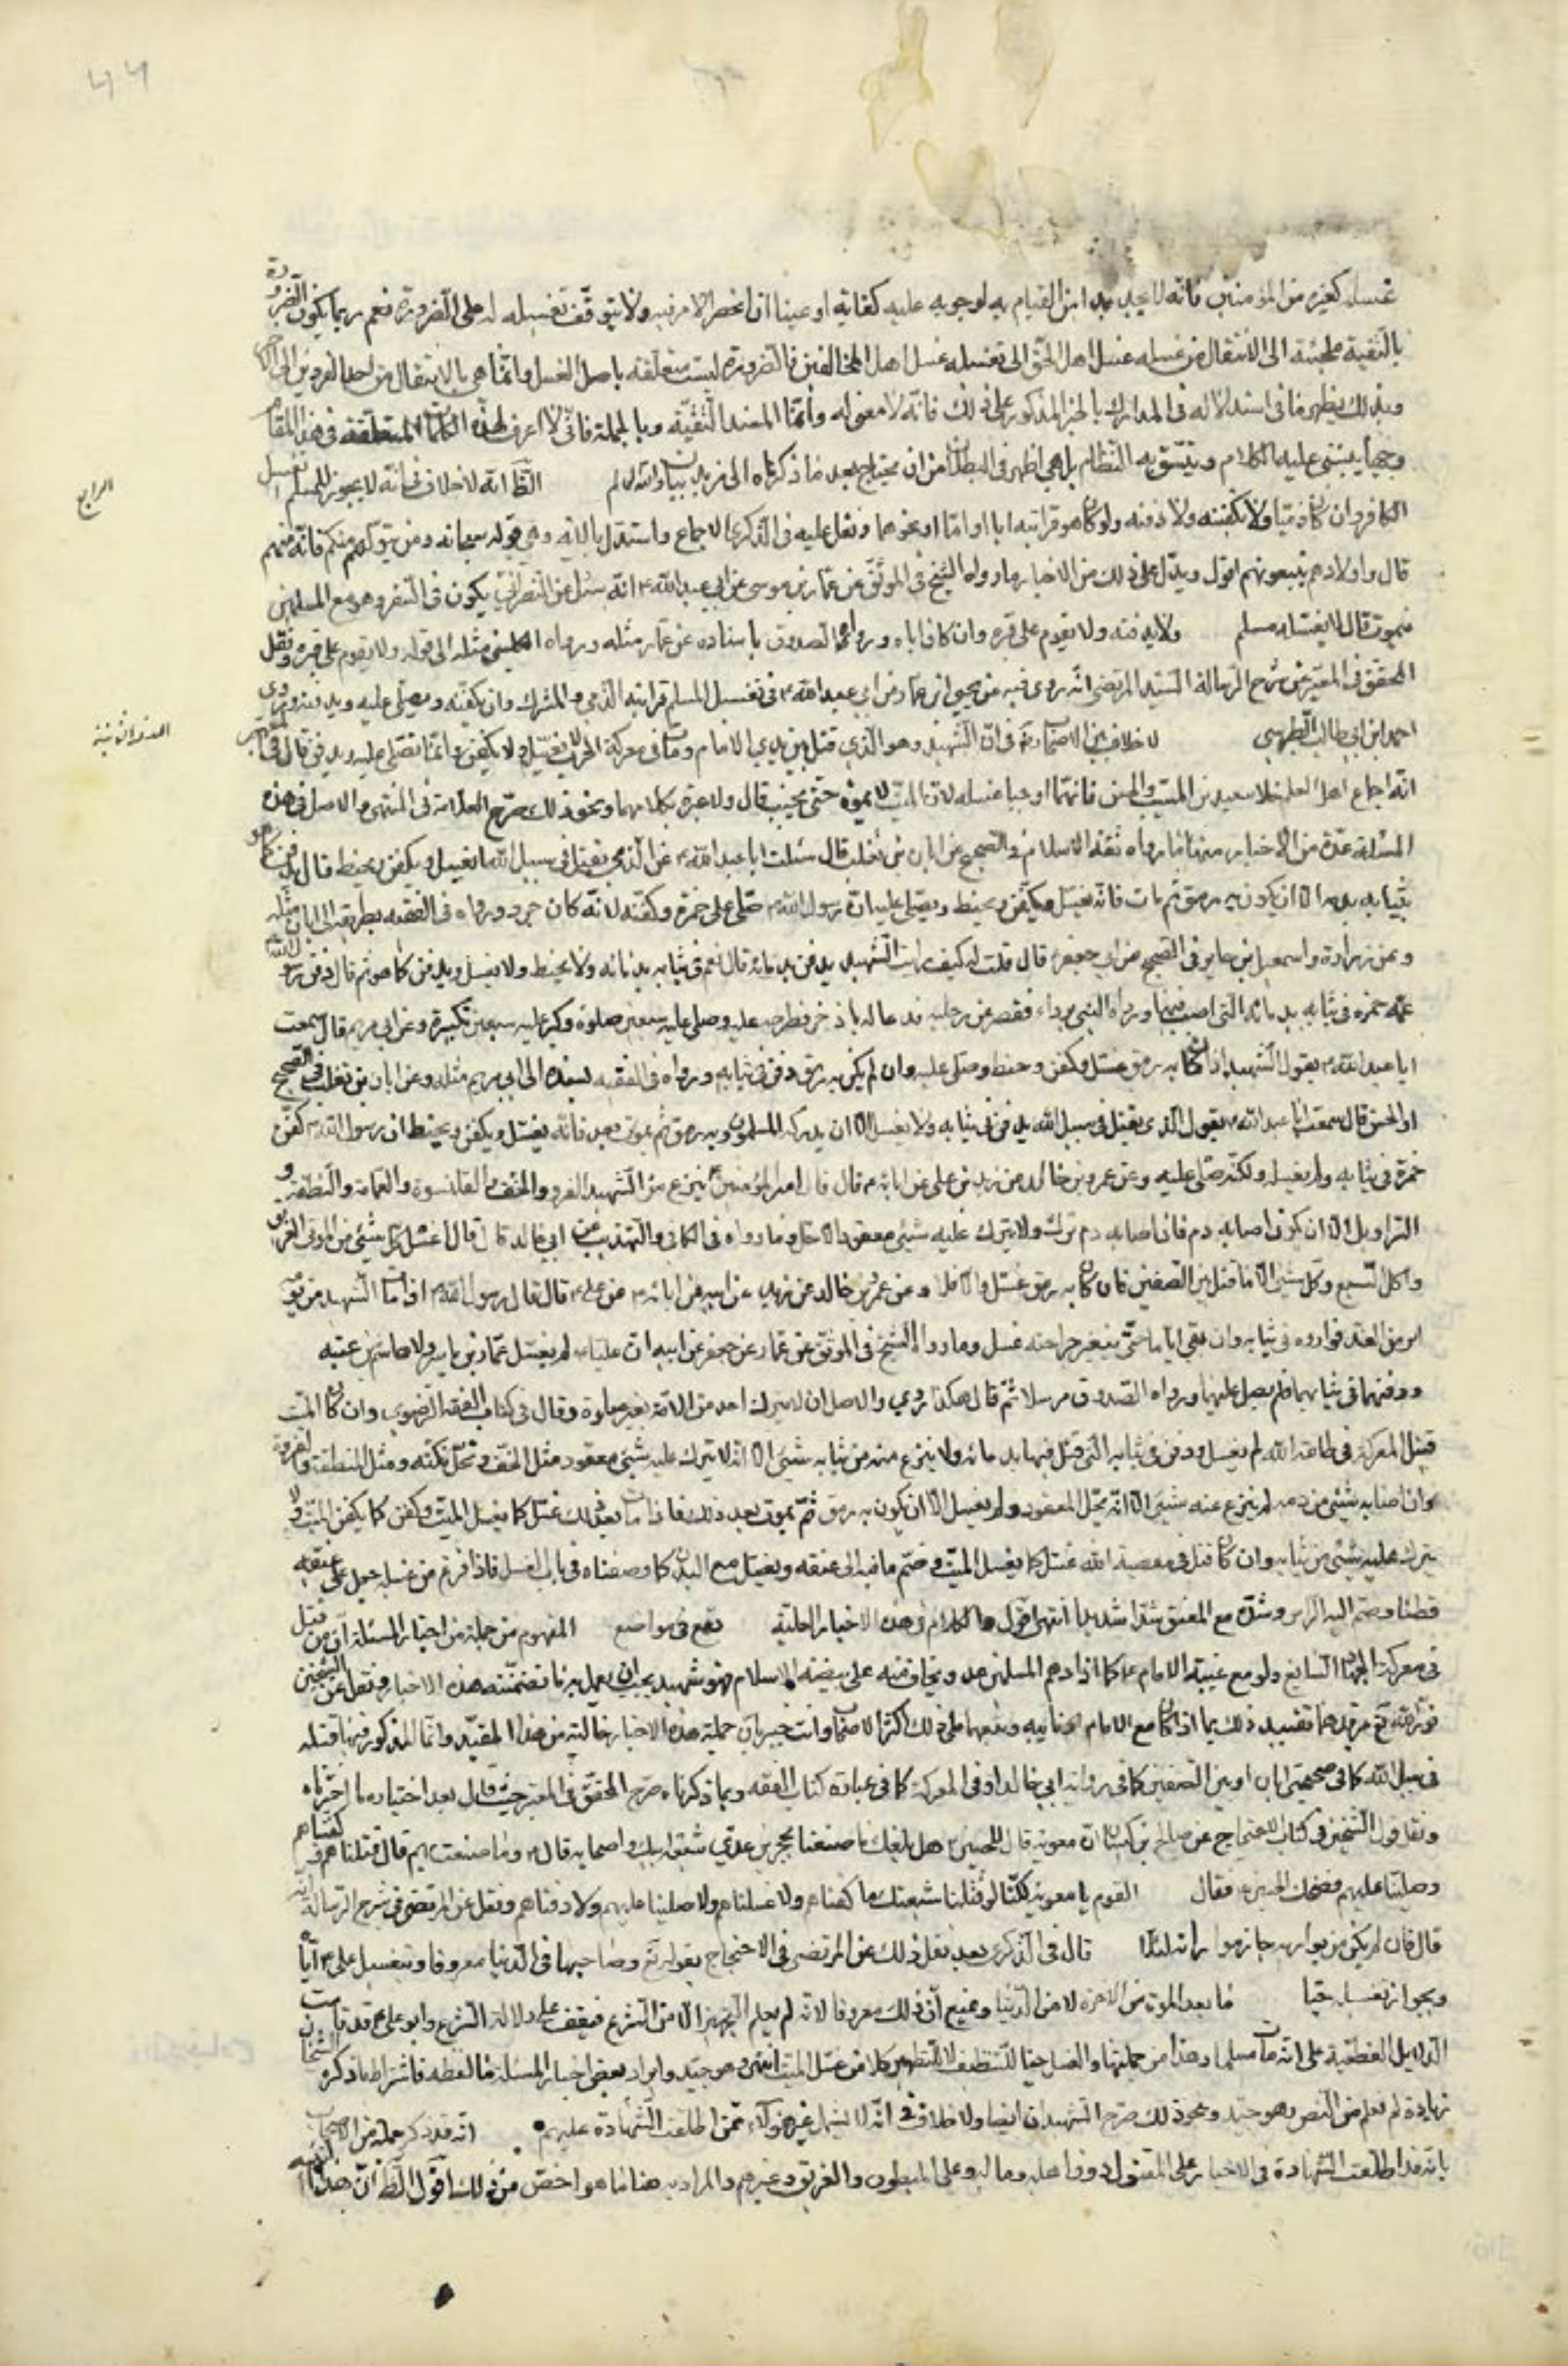 غسله كغيره من المؤمنين فانه لا يجد بدا من القيام به لوجوبه عليه كفاية او عينا ان انحصر الامر فيه ولا يتوقف تغسيله له على الضرورة نعم ربما يكون الضرورة
بالتقية ملجئة الى الانتقال من غسله غسل اهل الحق الى تغسيله غسل اهل الخلاف فالضرورة ليست متعلقة باصل الغسل وانما هي بالانتقال من احد الفردين الى الاخر
وبذلك يظهر ما في استدلاله في المدارك بالخبر المذكور على ذلك فانه لا معنى له وانما المستند التقية وبالجملة فاني لا اعرف لهذه الكلمات المتعلقة في هذا المقام
وجها يبتنى عليه الكلام ويتسق به النظام بل هي اظهر في البطلان من ان يحتاج بعد ما ذكرناه الى مزيد بيان والله العالم الظاهر انه لا خلاف في انه لا يجوز للمسلم تغسيل
الرابع
الكافر وان كان ذميا ولا تكفينه ولا دفنه ولو كان هو قرابته ابا او اما او نحوهما ونقل عليه في الذكرى الاجماع واستدل بالاية وهي قوله سبحانه ومن يتولهم منكم فانه منهم
قال واولادهم يتبعونهم اقول ويدل على ذلك من الاخبار ما رواه الشيخ في الموثق عن عمار بن موسى عن ابي عبد الله ع انه سئل عن النصراني يكون في السفر وهو مع المسلمين
فيموت قال لا يغسله مسلم ولا يدفنه ولا يقوم على قبره وان كان اباه ورواه الصدوق باسناده عن عمار مثله ورواه الكليني مثله الى قوله ولا يقوم على قبره ونقل
المحقق في المعتبر عن شرح الرسالة للسيد المرتضى انه روى فيه عن يحيى بن عمار عن ابي عبد الله ع في تغسيل المسلم قرابته الذمي والمشرك وان يكفنه ويصلي عليه ويدفنه وروى
احمد ابن ابي طالب الطبرسي لا خلاف بين الاصحاب في ان الشهيد وهو الذي قتل بين يدي الامام ومات في معركة الحرب لا يغسل ولا يكفن وانما يصلى عليه ويدفن قال في المعتبر
المقام الثاني
انه اجماع اهل العلم خلا سعيد بن المسيب والحسن فانهما اوجبا غسله لان الميت لا يموت حتى يجنب قال ولا عبرة بكلامهما ونحو ذلك صرح العلامة في المنتهى والاصل في هذه
المسئلة عدة من الاخبار منها ما رواه ثقة الاسلام في الصحيح عن ابان بن تغلب قال سئلت ابا عبد الله ع عن الذي يقتل في سبيل الله ايغسل ويكفن ويحنط قال يدفن كما هو
بثيابه بدمه الا ان يكون به رمق ثم مات فانه يغسل ويكفن ويحنط ويصلى عليه ان رسول الله ص صلى على حمزة وكفنه لانه كان جرد ورواه في الفقيه بطريقه الى ابان مثله
وعن زرارة واسمعيل بن جابر في الصحيح عن ابي جعفر ع قال قلت له كيف رايت الشهيد يدفن بدمائه قال نعم في ثيابه بدمائه ولا يحنط ولا يغسل ويدفن كما هو ثم قال دفن رسول الله
عمه حمزة في ثيابه بدمائه التي اصيب فيها ورداه النبي برداء فقصر عن رجليه فدعا له باذخر فطرحه عليه وصلى عليه سبعين صلوة وكبر عليه سبعين تكبيرة وعن ابي مريم قال سمعت
ابا عبد الله ع يقول الشهيد اذا كان به رمق غسل وكفن وحنط وصلى عليه وان لم يكن به رمق دفن في ثيابه ورواه في الفقيه بسنده الى ابي مريم مثله وعن ابان بن تغلب في الصحيح
او الحسن قال سمعت ابا عبد الله ع يقول الذي يقتل في سبيل الله يدفن في ثيابه ولا يغسل الا ان يدركه المسلمون وبه رمق ثم يموت بعد فانه يغسل ويكفن ويحنط ان رسول الله ص كفن
حمزة في ثيابه ولم يغسله ولكنه صلى عليه وعن عمرو بن خالد عن زيد بن علي عن ابائه ع قال قال امير المؤمنين ع ينزع من الشهيد الفرو والخف والقلنسوة والعمامة والمنطقة و
السراويل الا ان يكون اصابه دم فان اصابه دم ترك ولا يترك عليه شيئ معقود الا حل وما رواه في الكافي والتهذيب عن ابي خالد قال قال اغسل كل شيئ من الموتى الغريق
واكيل السبع وكل شيئ الا ما قتل بين الصفين فان كان به رمق غسل والا فلا وعن عمرو بن خالد عن زيد عن ابيه عن ابائه ع عن علي ع قال قال رسول الله ص اذا مات الشهيد من يومه
او من الغد فواروه في ثيابه وان بقي اياما حتى يتغير جراحته غسل وما رواه الشيخ في الموثق عن عمار عن جعفر عن ابيه ان عليا ع لم يغسل عمار بن ياسر ولا هاشم بن عتبه
ودفنهما في ثيابهما ولم يصل عليهما ورواه الصدوق مرسلا ثم قال هكذا روي والاصل ان لا يترك احد من الامة بغير صلوة وقال في كتاب الفقه الرضوي وان كان الميت
قتيل المعركة في طاعة الله لم يغسل ودفن في ثيابه التي قتل فيها بدمائه ولا ينزع منه من ثيابه شيئ الا انه لا يترك عليه شيئ معقود مثل الخف وتحل تكته ومثل المنطقة والفروة
وان اصابه شيئ من دمه لم ينزع عنه شيئ الا انه يحل المعقود ولم يغسل الا ان يكون به رمق ثم يموت بعد ذلك فاذا مات بعد ذلك غسل كما يغسل الميت وكفن كما يكفن الميت ولا
يترك عليه شيئ من ثيابه وان كان قتل في معصية الله غسل كما يغسل الميت وضم راسه الى عنقه ويغسل مع البدن كما وصفناه في باب الغسل فاذا فرغ من غسله جعل على عنقه
قطنا وضم اليه الراس وشده مع العنق شدا شديدا انتهى اقول والكلام في هذه الاخبار الجلية يقع في مواضع المفهوم من جملة من اخبار المسئلة ان من قتل
في معركة الجهاد السائغ ولو مع غيبة الامام ع كما اذا دهم المسلمين عدو يخاف منه على بيضة الاسلام فهو شهيد يجب ان يعمل به ما تضمنته هذه الاخبار ونقل عن الشيخين
تقييد ذلك بما اذا كان مع الامام او نائبه وتبعهما على ذلك اكثر الاصحاب وانت خبير بان جملة هذه الاخبار خالية من هذا المقيد وانما المذكور فيها قتله
في سبيل الله كما في صحيحتي ابان او بين الصفين كما في رواية ابي خالد او في المعركة كما في عبارة كتاب الفقه وبما ذكرناه صرح المحقق في المعتبر حيث قال بعد اختياره ما اخترناه
ونقل قول الشيخين في كتاب الاحتجاج عن صالح بن كيسان ان معوية قال للحسين ع هل بلغك ما صنعنا بحجر بن عدي شيعة ابيك واصحابه قال ع وما صنعت بهم قال قتلناهم وكفناهم
وصلينا عليهم فضحك الحسين ع فقال القوم يا معوية لكنا لو قتلنا شيعتك ما كفناهم ولا غسلناهم ولا صلينا عليهم ولا دفناهم ونقل عن المرتضى في شرح الرسالة انه
قال فان لم يكن من يواريه جاز مواراته لئلا قال في الذكرى بعد نقل ذلك عن المرتضى في الاحتجاج بقوله تع وصاحبهما في الدنيا معروفا وبتغسيل علي ع اباه
وبجواز تغسله حيا فما بعد الموت من الاخرة لا من الدنيا ونمنع ان ذلك معروفا لانه لم يعلم التجهيز الا من الشرع فيقف على دلالة الشرع وابو علي ع قد قامت
الدلايل القطعية على انه مات مسلما وهذا من جملتها والغسل حيا للتنظيف لا للتطهير كلام غسل الميت انتهى وهو جيد وايراد بعض اخبار المسئلة ما لفظه فاشتراط ما ذكره الشيخان
زيادة لم تعلم من النص وهو جيد ونحو ذلك صرح الشهيدان ايضا ولا خلاف في انه لا يشمل غير هؤلاء ممن اطلقت الشهادة عليهم انه قد ذكر جملة من الاصحاب
بانه قد اطلقت الشهادة في الاخبار على المقتول دون اهله وماله وعلى المبطون والغريق وغيرهم والمراد به هنا ما هو اخص من ذلك اقول الظاهر ان هذا